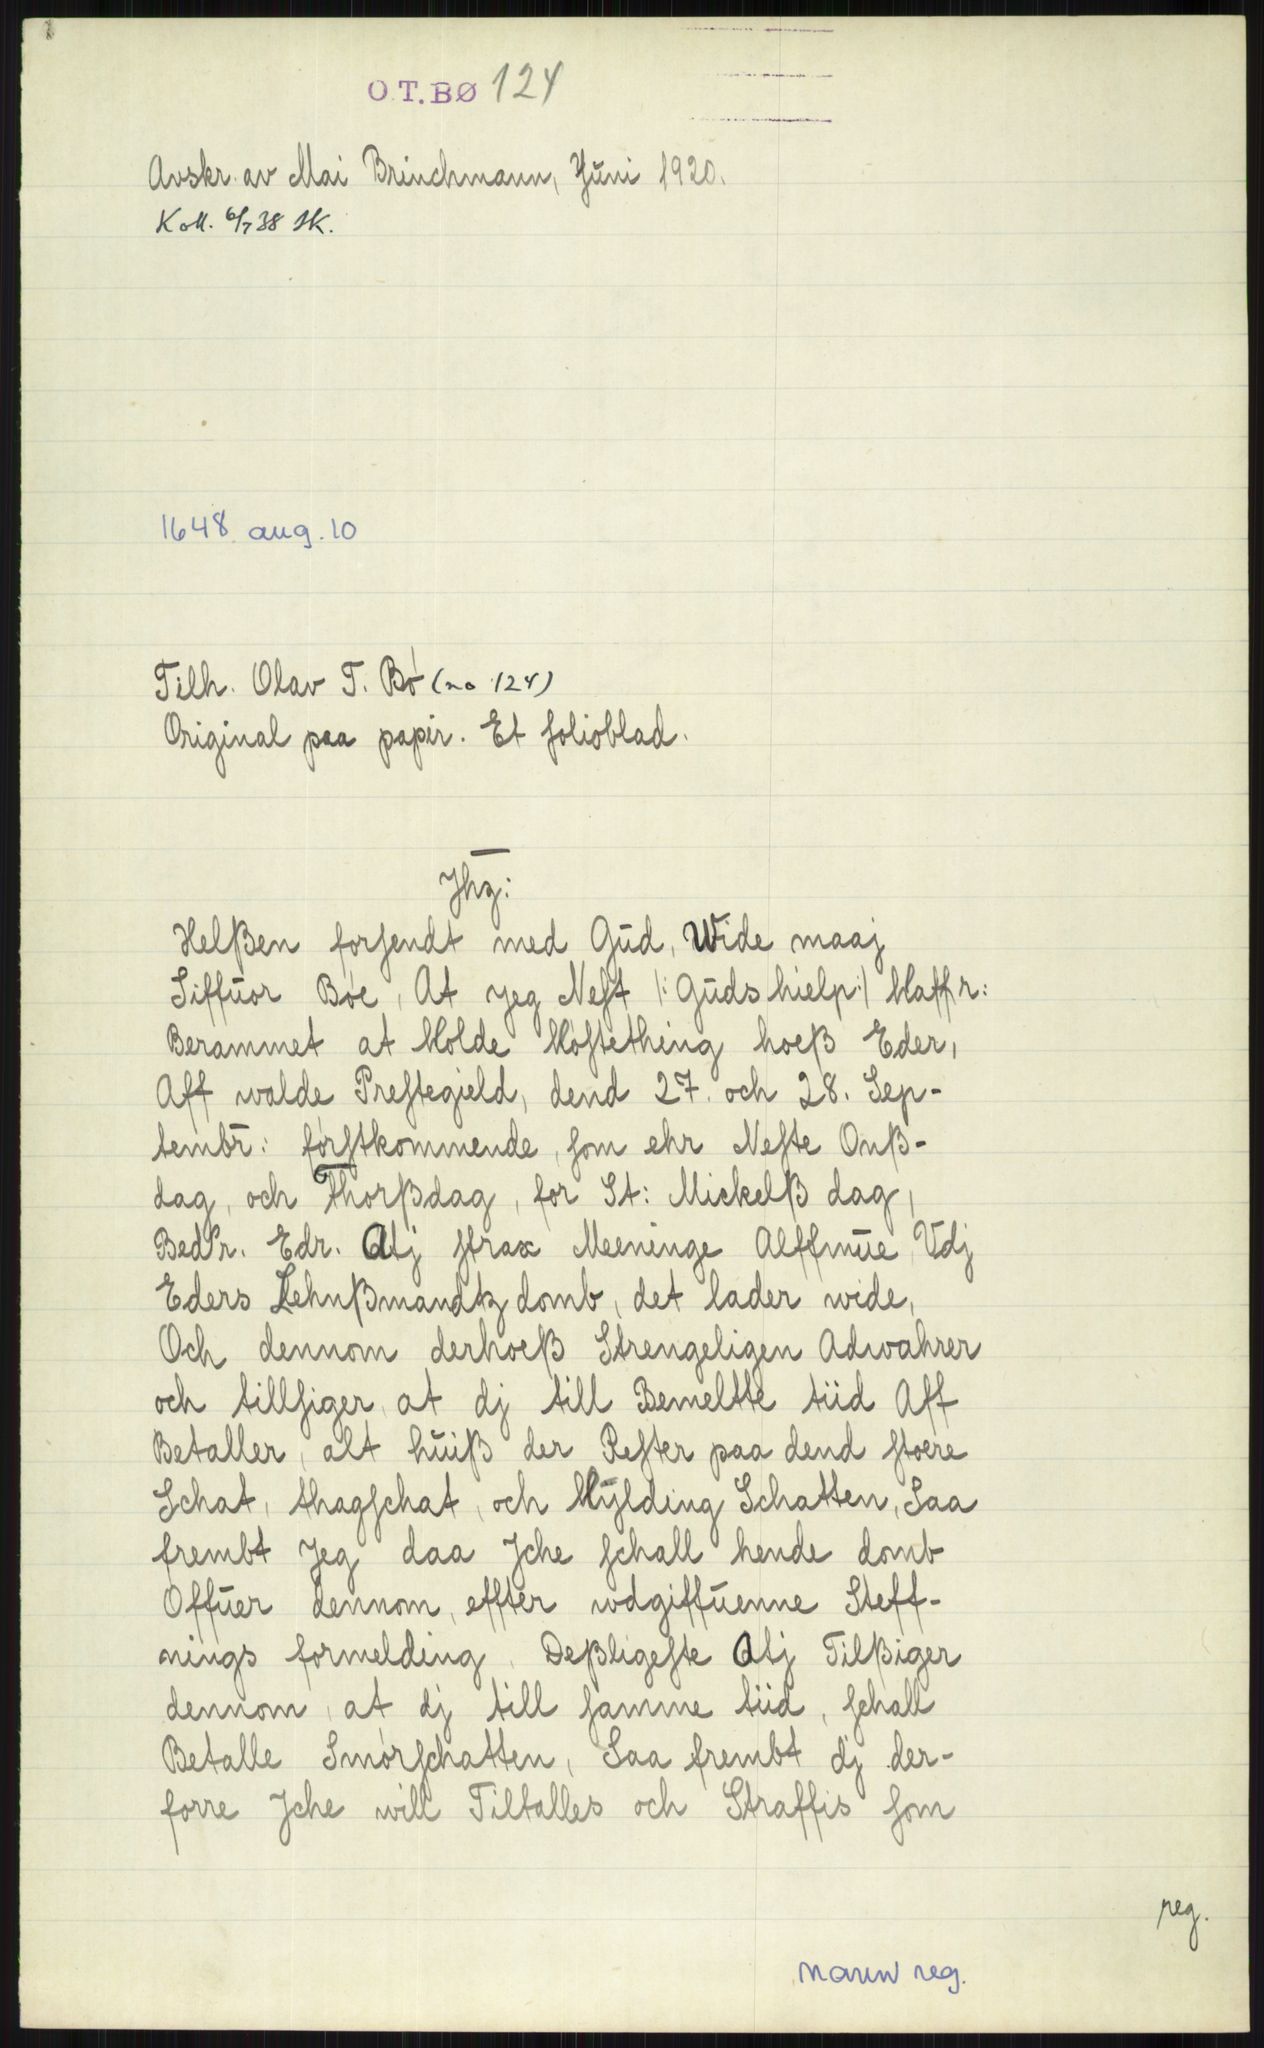 O.T.BØ 124
Avskr. av Mai Brinchmann, Juni 1920.
Koll. 6/7 38 SK.
1648 aug. 10
Tilh. Olav T. Bø (no 124)
Original paa papir. Et folioblad.
Jhz:
Helßen forſendt med Gud, Wide maaj
Siffuor Bøe, At Jeg Neſt /:Guds hielp:/ Haffr:
Berammet at Holde Høſtething hoeß Eder,
Aff walde Preſtegield, dend 27. och 28. Sep-
tembr: førſtkommende, ſom ehr Neſte Onß-
dag, och Thorßdag, for St: Mickelß dag,
Bedr. Edr. Atj ſtrax Meeninge Alffmue, Vdj
Eders Lehnßmandtz domb, det lader wide,
Och dennom derhoeß Strengeligen Adwahrer
och tillſiger, at dj till Bemeltte tiid Aff
Betaller, alt huiß der Reſter paa dend ſtoere
Schat, thagſchat, och Hylding Schatten, Saa
frembt Jeg daa Jche ſchall hende domb
Offuer dennom, effter wdgiffuenne Steff-
nings formelding. Deßligeſte Atj Tilßiger
dennom, at dj till ſamme tiid, ſchall
Betalle Smørſchatten, Saa frembt dj der-
forre Jche will Tiltalles och Straffis ſom
reg.
navne reg.